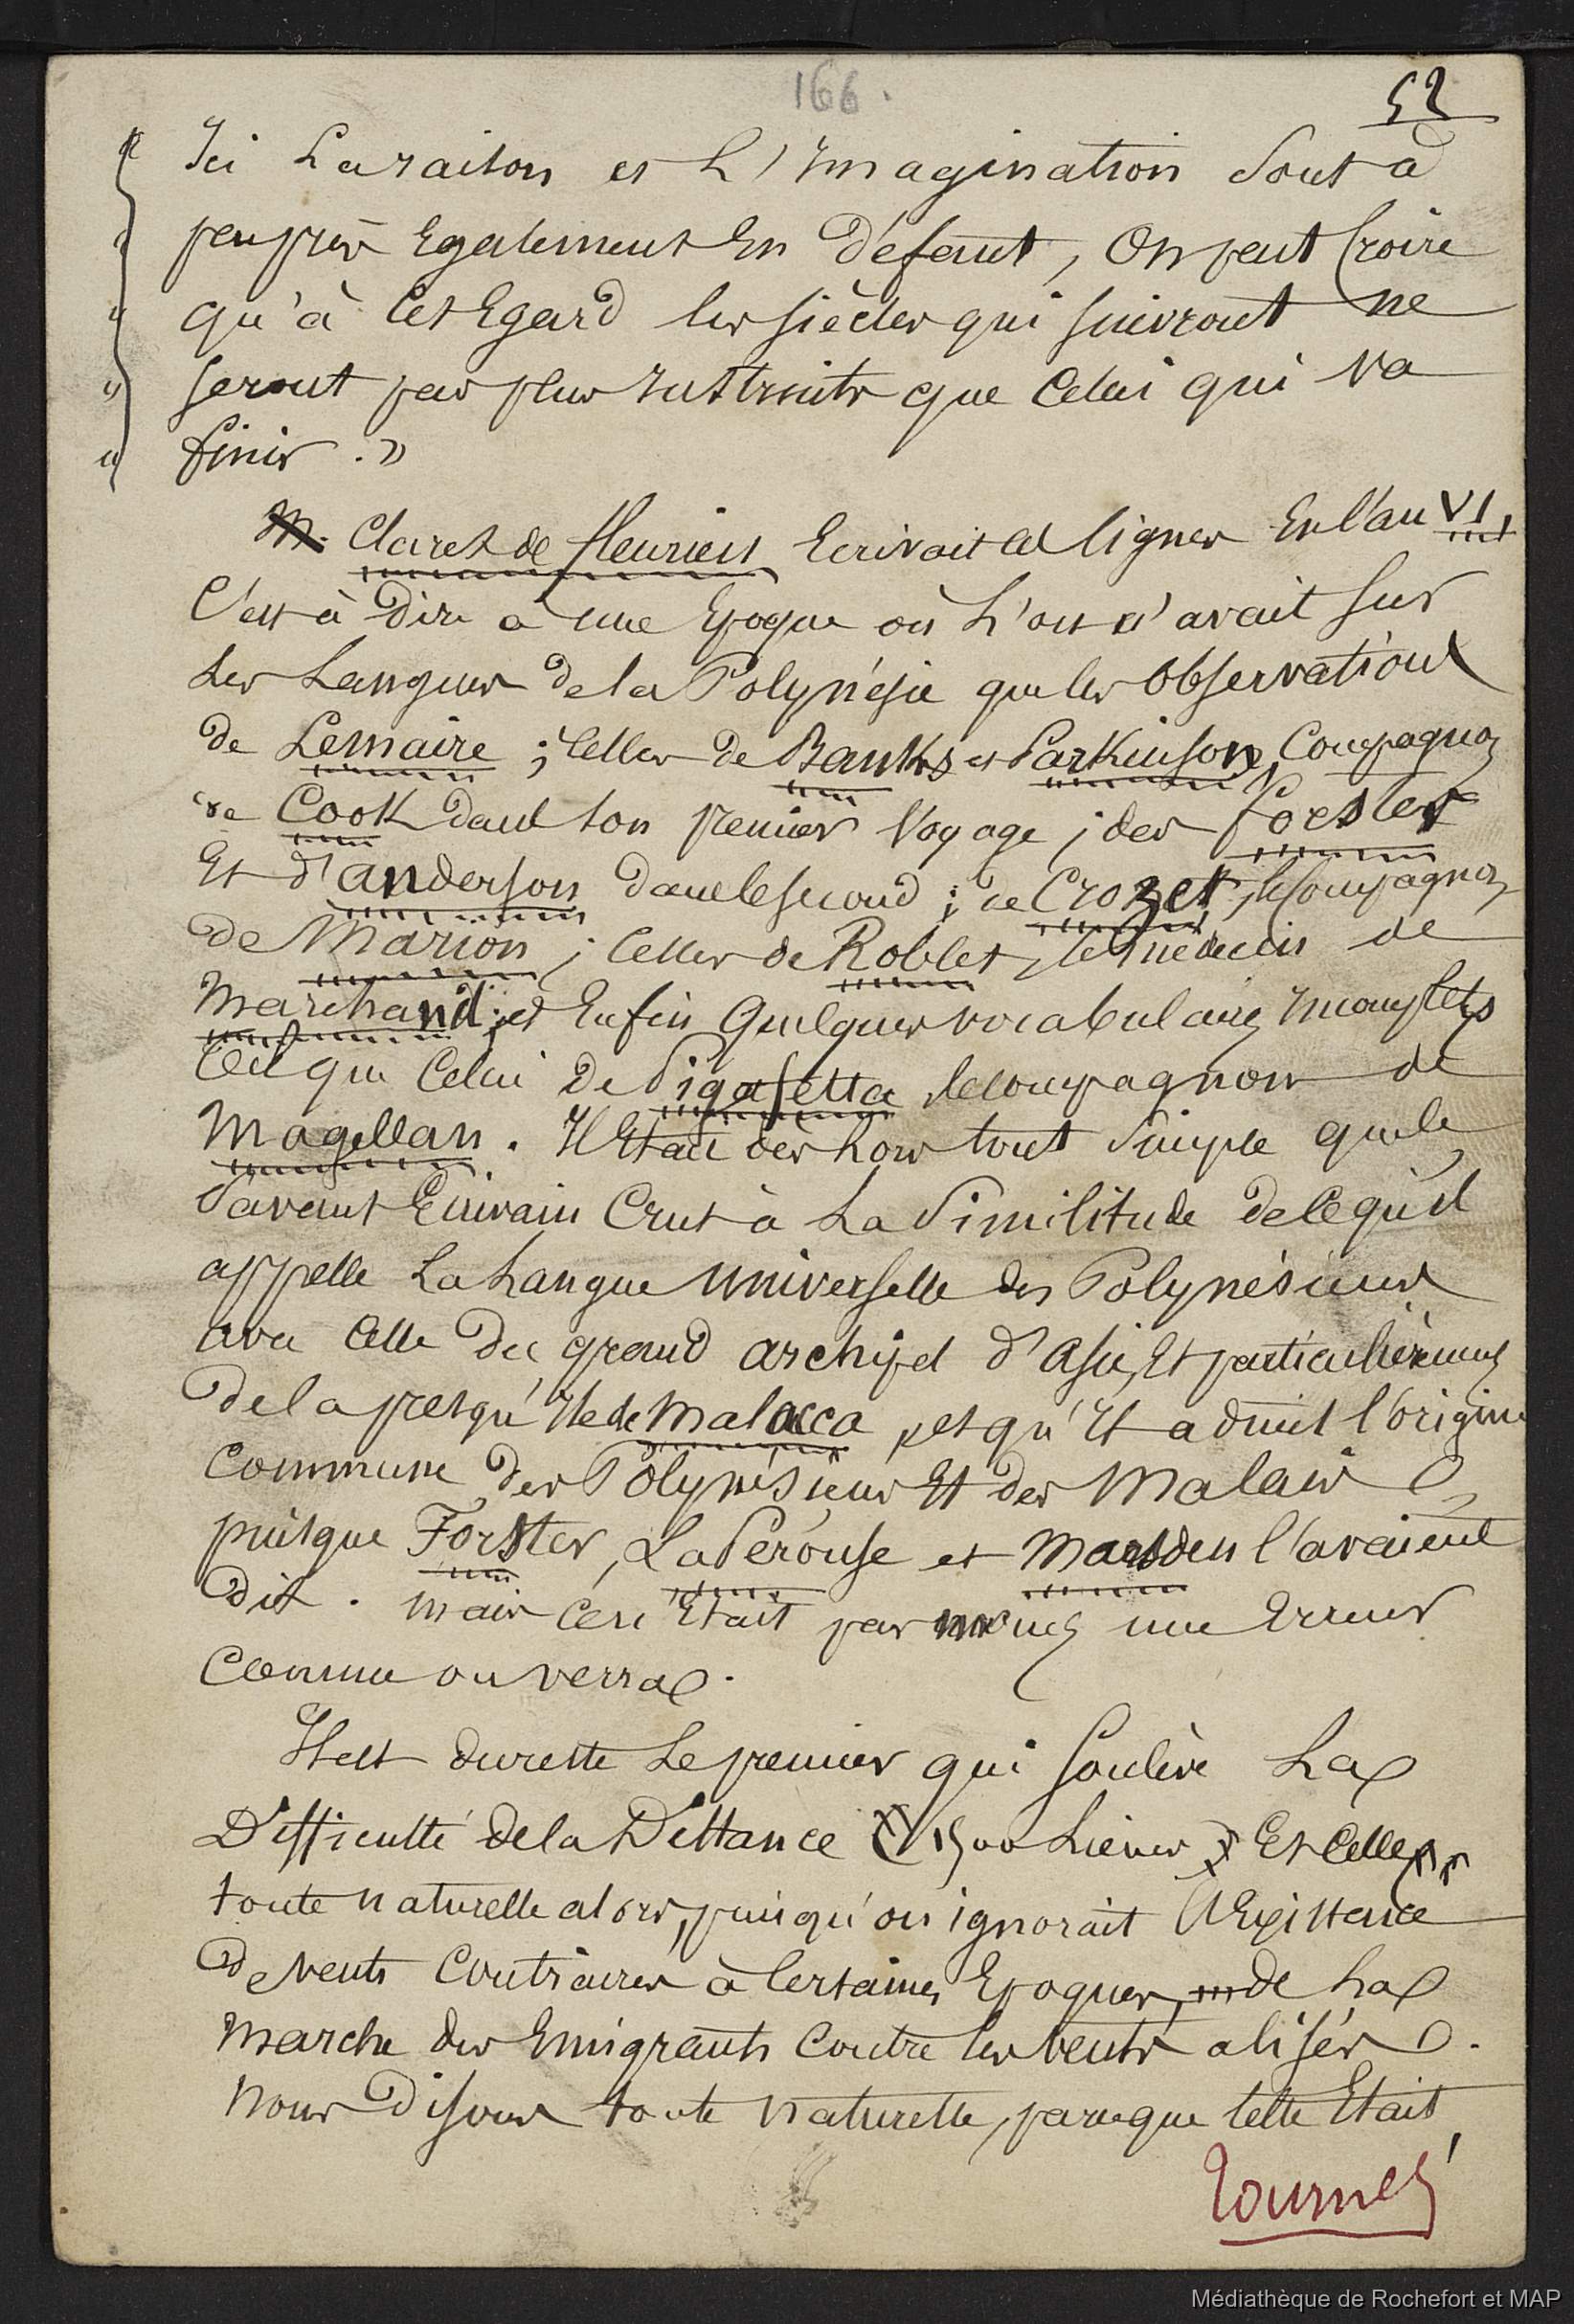 166.
52
Ici la raison et l'Imagination sont à
peu près Egalement En défaut, On peut Croire
qu'à Cet Egard les siècles qui suivront ne
seront pas plus instruits que Celui qui va
finir. »
M. Claret de fleurieu Ecrivait ces lignes En l'an VI,
C'est à dire à une Epoque où l'on n'avait sur
les Langues de la Polynésie que les observations
de Lemaire ; Celles de Banks et Parkinson, Compagnons
de Cook dans son premier Voyage ; des forster
Et d'anderson dans le second ; de Crozet, le Compagnon
de Marion ; Celles de Roblet, le médecin de
Marchand ; et Enfin quelques vocabulaires Incomplets
tels que Celui de Pigafetta le compagnon de
Magellan. Il Etait dès lors tout Simple que le
Savant Ecrivain Crut à la Similitude de ce qu'il
appelle la Langue universelle des Polynésiens
avec Celle du grand archipel d'asie, Et particulièrement
de la presqu'Ile de Malacca, et qu'Il admit l'origine
Commune des Polynésiens Et des Malais
puisque Forster, La Pérouse et Marsden l'avaient
dit. Mais Ceci Etait pas moins une Erreur
Comme on verra.
Il est du reste le premier qui soulève la
Difficulté de la Distance (1500 Lieues) Et Celle
toute naturelle alors, puisqu'on ignorait l'Existence
de vents Contraires à Certaines Epoques, de la
marche des Emigrants Contre les vents alisés.
Nous Disons toute naturelle, parceque telle Etait
tournez
Médiathèque de Rochefort et MAP